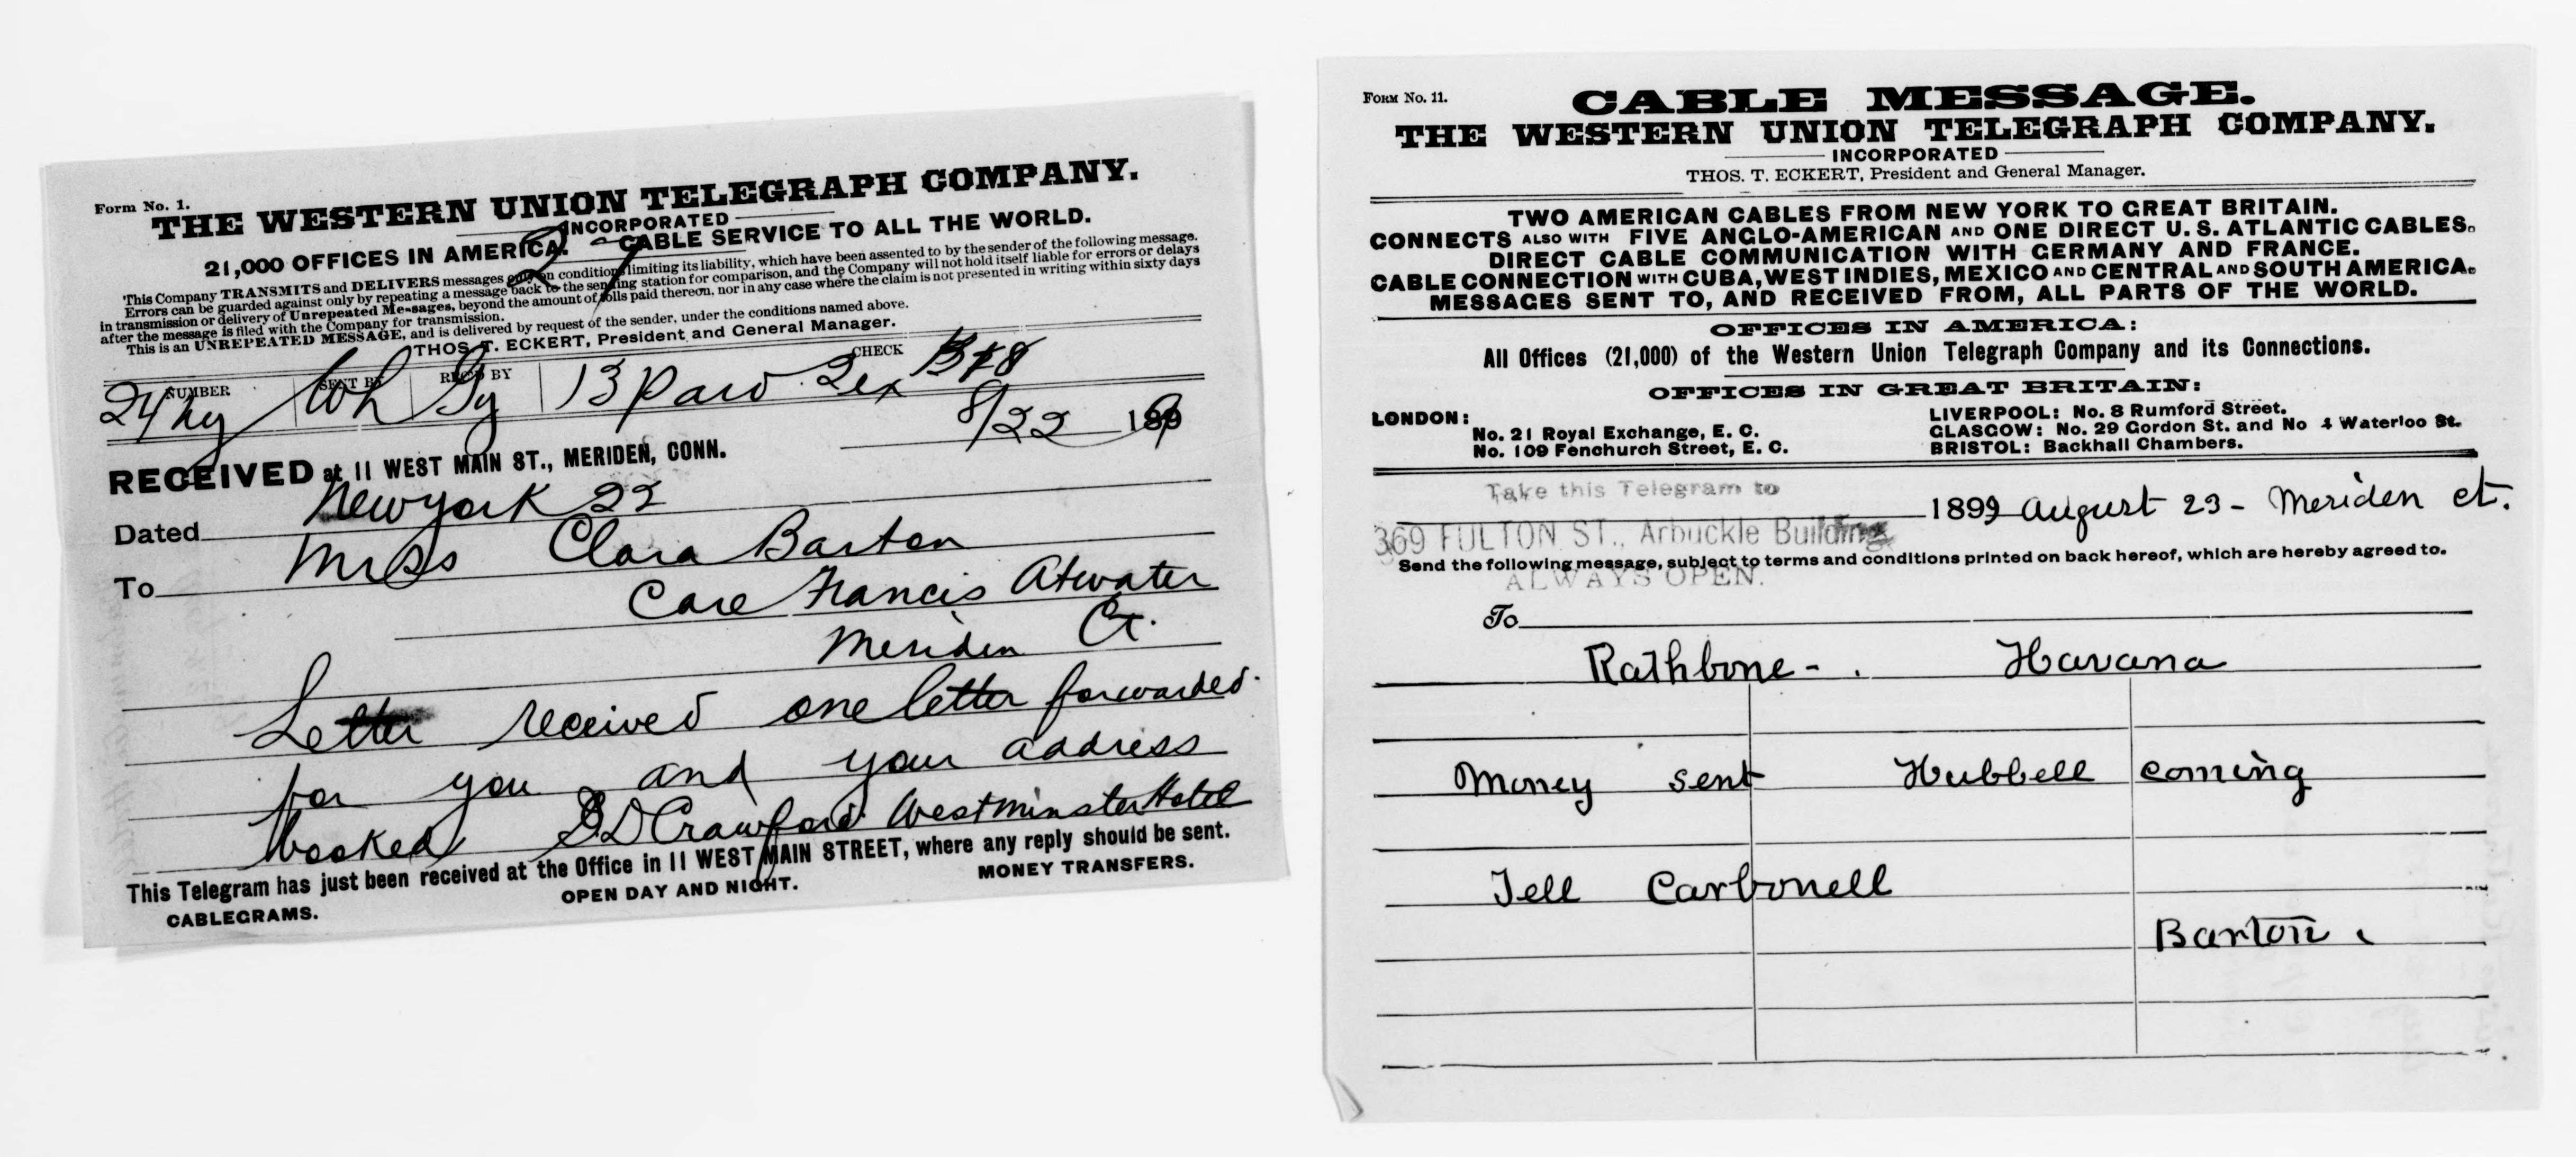 Form No. 1.
THE WESTERN UNION TELEGRAPH COMPANY.
INCORPORATED
21,000 OFFICES IN AMERICA. CABLE SERVICE TO ALL THE WORLD.
This Company TRANSMITS and DELIVERS messages only on conditions limiting its liability, which have been assented to by the sender of the following message.
Errors can be guarded against only by repeating a message back to the sending station for comparison, and the Company will not hold itself liable for errors or delays
in transmission or delivery of Unrepeated Messages, beyond the amount of tolls paid thereon, nor in any case where the claim is not presented in writing within sixty days
after the message is filed with the Company for transmission.
This is an UNREPEATED MESSAGE, and is delivered by request of the sender, under the conditions named above.
THOS. T. ECKERT, President and General Manager.
NUMBER SENT BY REC'D BY CHECK
24 Wh Gy 13 Paid
8/22 1899
RECEIVED at 11 WEST MAIN ST., MERIDEN, CONN.
Dated New york 22
To Miss Clara Barton
Care Francis Atwater
Meriden Ct.
Letter received one letter forwarded
for you and your address
booked D Crawford Westminster Hotel
This Telegram has just been received at the Office in 11 WEST MAIN STREET, where any reply should be sent.
CABLEGRAMS. OPEN DAY AND NIGHT. MONEY TRANSFERS.
Form No. 11.
CABLE MESSAGE.
THE WESTERN UNION TELEGRAPH COMPANY.
INCORPORATED
THOS. T. ECKERT, President and General Manager.
TWO AMERICAN CABLES FROM NEW YORK TO GREAT BRITAIN.
CONNECTS ALSO WITH FIVE ANGLO-AMERICAN AND ONE DIRECT U. S. ATLANTIC CABLES.
DIRECT CABLE COMMUNICATION WITH GERMANY AND FRANCE.
CABLE CONNECTION WITH CUBA, WEST INDIES, MEXICO AND CENTRAL AND SOUTH AMERICA.
MESSAGES SENT TO, AND RECEIVED FROM, ALL PARTS OF THE WORLD.
OFFICES IN AMERICA:
All Offices (21,000) of the Western Union Telegraph Company and its Connections.
OFFICES IN GREAT BRITAIN:
LONDON:
No. 21 Royal Exchange, E. C.
No. 109 Fenchurch Street, E. C.
LIVERPOOL: No. 8 Rumford Street.
GLASGOW: No. 29 Gordon St. and No 4 Waterloo St.
BRISTOL: Backhall Chambers.
Take this Telegram to
1899 August 23 - Meriden ct.
369 FULTON ST., Arbuckle Building
Send the following message, subject to terms and conditions printed on back hereof, which are hereby agreed to.
ALWAYS OPEN.
To
Rathbone - . Havana
Money sent Hubbell coming
Tell Carbonell
Barton.